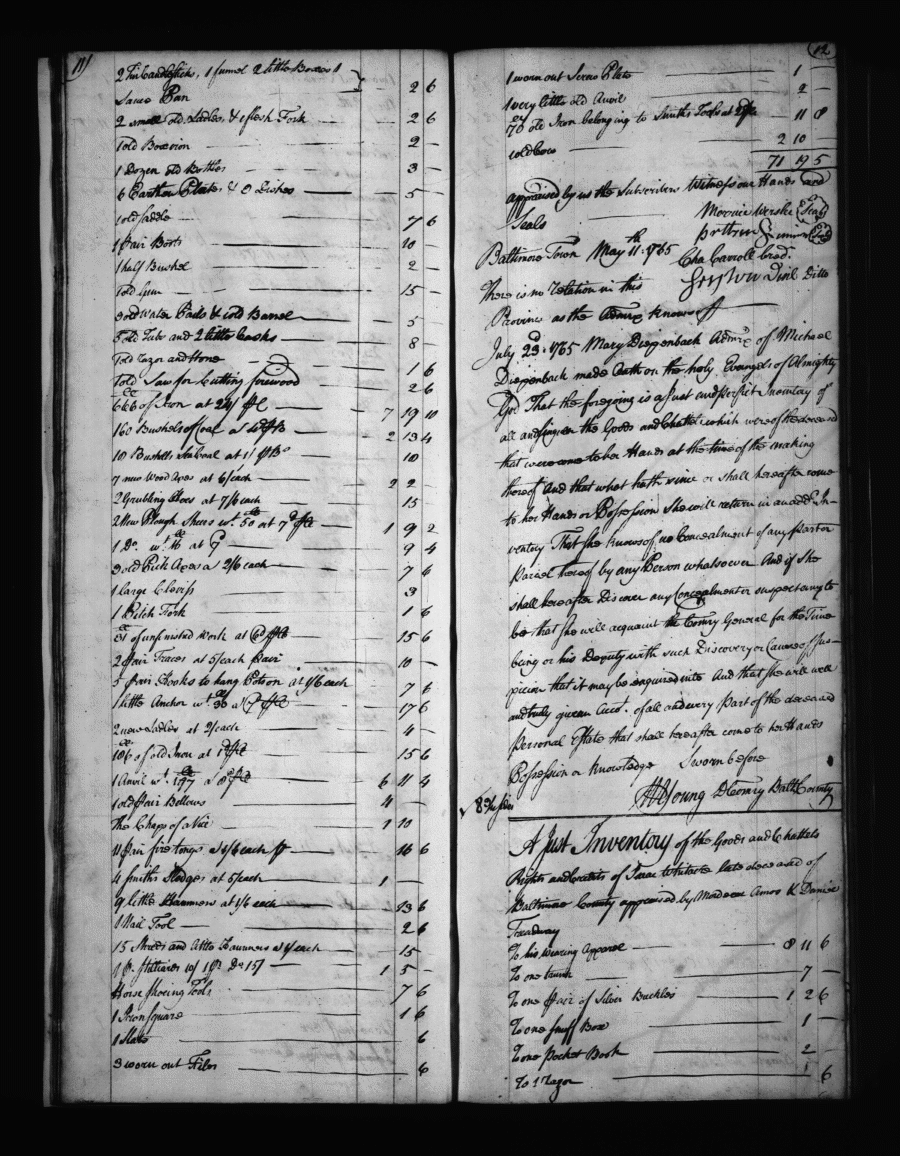 111
2 Tin Candlesticks, 1 funnel 2 little Boxes 1
Sauce Pan — 2 6
2 small old Ladles & flesh Fork — 2 6
1 old Box iron — 2 —
1 Dozen old Bottles — 3 —
6 Earthen Plates & Dishes — 5 —
1 old Saddle — 7 6
1 pair Boots — 10 —
1 half Bushel — 2 —
1 old Gun — 15 —
3 old Water Pails & 1 old Barrel — 5 —
5 old Tubs and 2 little Casks — 8 —
1 old Razor and Hone — 1 6
1 old Saw for Cutting firewood — 2 6
of Iron at 24/ — 7 19 10
160 Bushels of Coal at — 2 13 4
10 Bushels Seacoal at 1/ — 10
7 new Wood Axes at 6/ each — 2 2 —
2 Grubbing Hoes at 7/6 each — 15
2 New Plough Shears wt. 50 at 7d — 1 9 2
1 Do. wt. 16 at 7 — 9 4
3 old Pick Axes a 2/6 each — 7 6
1 large Cleviss — 3
1 Pitch Fork — 1 6
31 of unfinished Work at 6d — 15 6
2 pair Traces at 5/ each pair — 10 —
5 pair Hooks to hang Pots on at 1/6 each — 7 6
1 little Anchor wt. — 17 6
2 new Ladles at 2/ each — 4 —
186 of old Iron at 1d — 15 6
1 Anvil wt. 197 a 8d — 6 11 4
1 old pair Bellows — 4 —
The Chaps of a Vice — 1 10
11 pair fire tongs at 1/6 each — 16 6
4 Smiths Sledges at 5/ each — 1 —
9 little Hammers at 1/6 each — 13 6
1 Nail Tool — 2 6
15 Shoes and Hammers a 1/ each — 15 —
1 pr. Stilliards — 1 5 —
Horse Shoeing Tools — 7 6
1 Iron Square — 1 6
1 Slate — 6
3 worn out Files — 6
112
1 worn out Screw Plate — 1 —
1 very little old Anvil — 2 —
70 old Iron belonging to Smiths Tools at 2d — 11 8
1 old Cow — 2 10
71 19 5
appraised by us the Subscribers Witness our Hands and
Seals
Baltimore Town May 11th. 1765 Cha Carroll Cred.
There is no relation in this Ditto
Province as the Admrx knows of
July 23d. 1765 Mary Diegenback Admrx of Michael
Diegenback made Oath on the holy Evangels of Almighty
God That the foregoing is a just and perfect Inventory of
all and singular the Goods and Chattels which were of the deceased
that were come to her Hands at the time of the making
thereof and that what hath since or shall hereafter come
to her Hands or Possession She will return in an addl. In-
ventory That She knows of no Concealment of any part or
Parcel thereof by any Person whatsoever And if She
shall hereafter Discover any Concealment or suspect any to
be that She will acquaint the Comry General for the Time
being or his Deputy with such Discovery or Cause of Sus-
picion that it may be enquired into And that She will well
and truly give an Acct. of all and every part of the deceased
Personal Estate that shall hereafter come to her Hands
Possession or Knowledge Sworn before
Young D Comry Balt County
A Just Inventory of the Goods and Chattels
Rights and Credits of Isaac Whitacre late deceased of
Baltimore County appraised by Amos & Daniel
Treadway
To his wearing Apparel — 8 11 6
To one — 7 —
To one pair of Silver Buckles — 1 2 6
To one Snuff Box — 1 —
To one Pocket Book — 2 —
To 1 Razor — 1 6